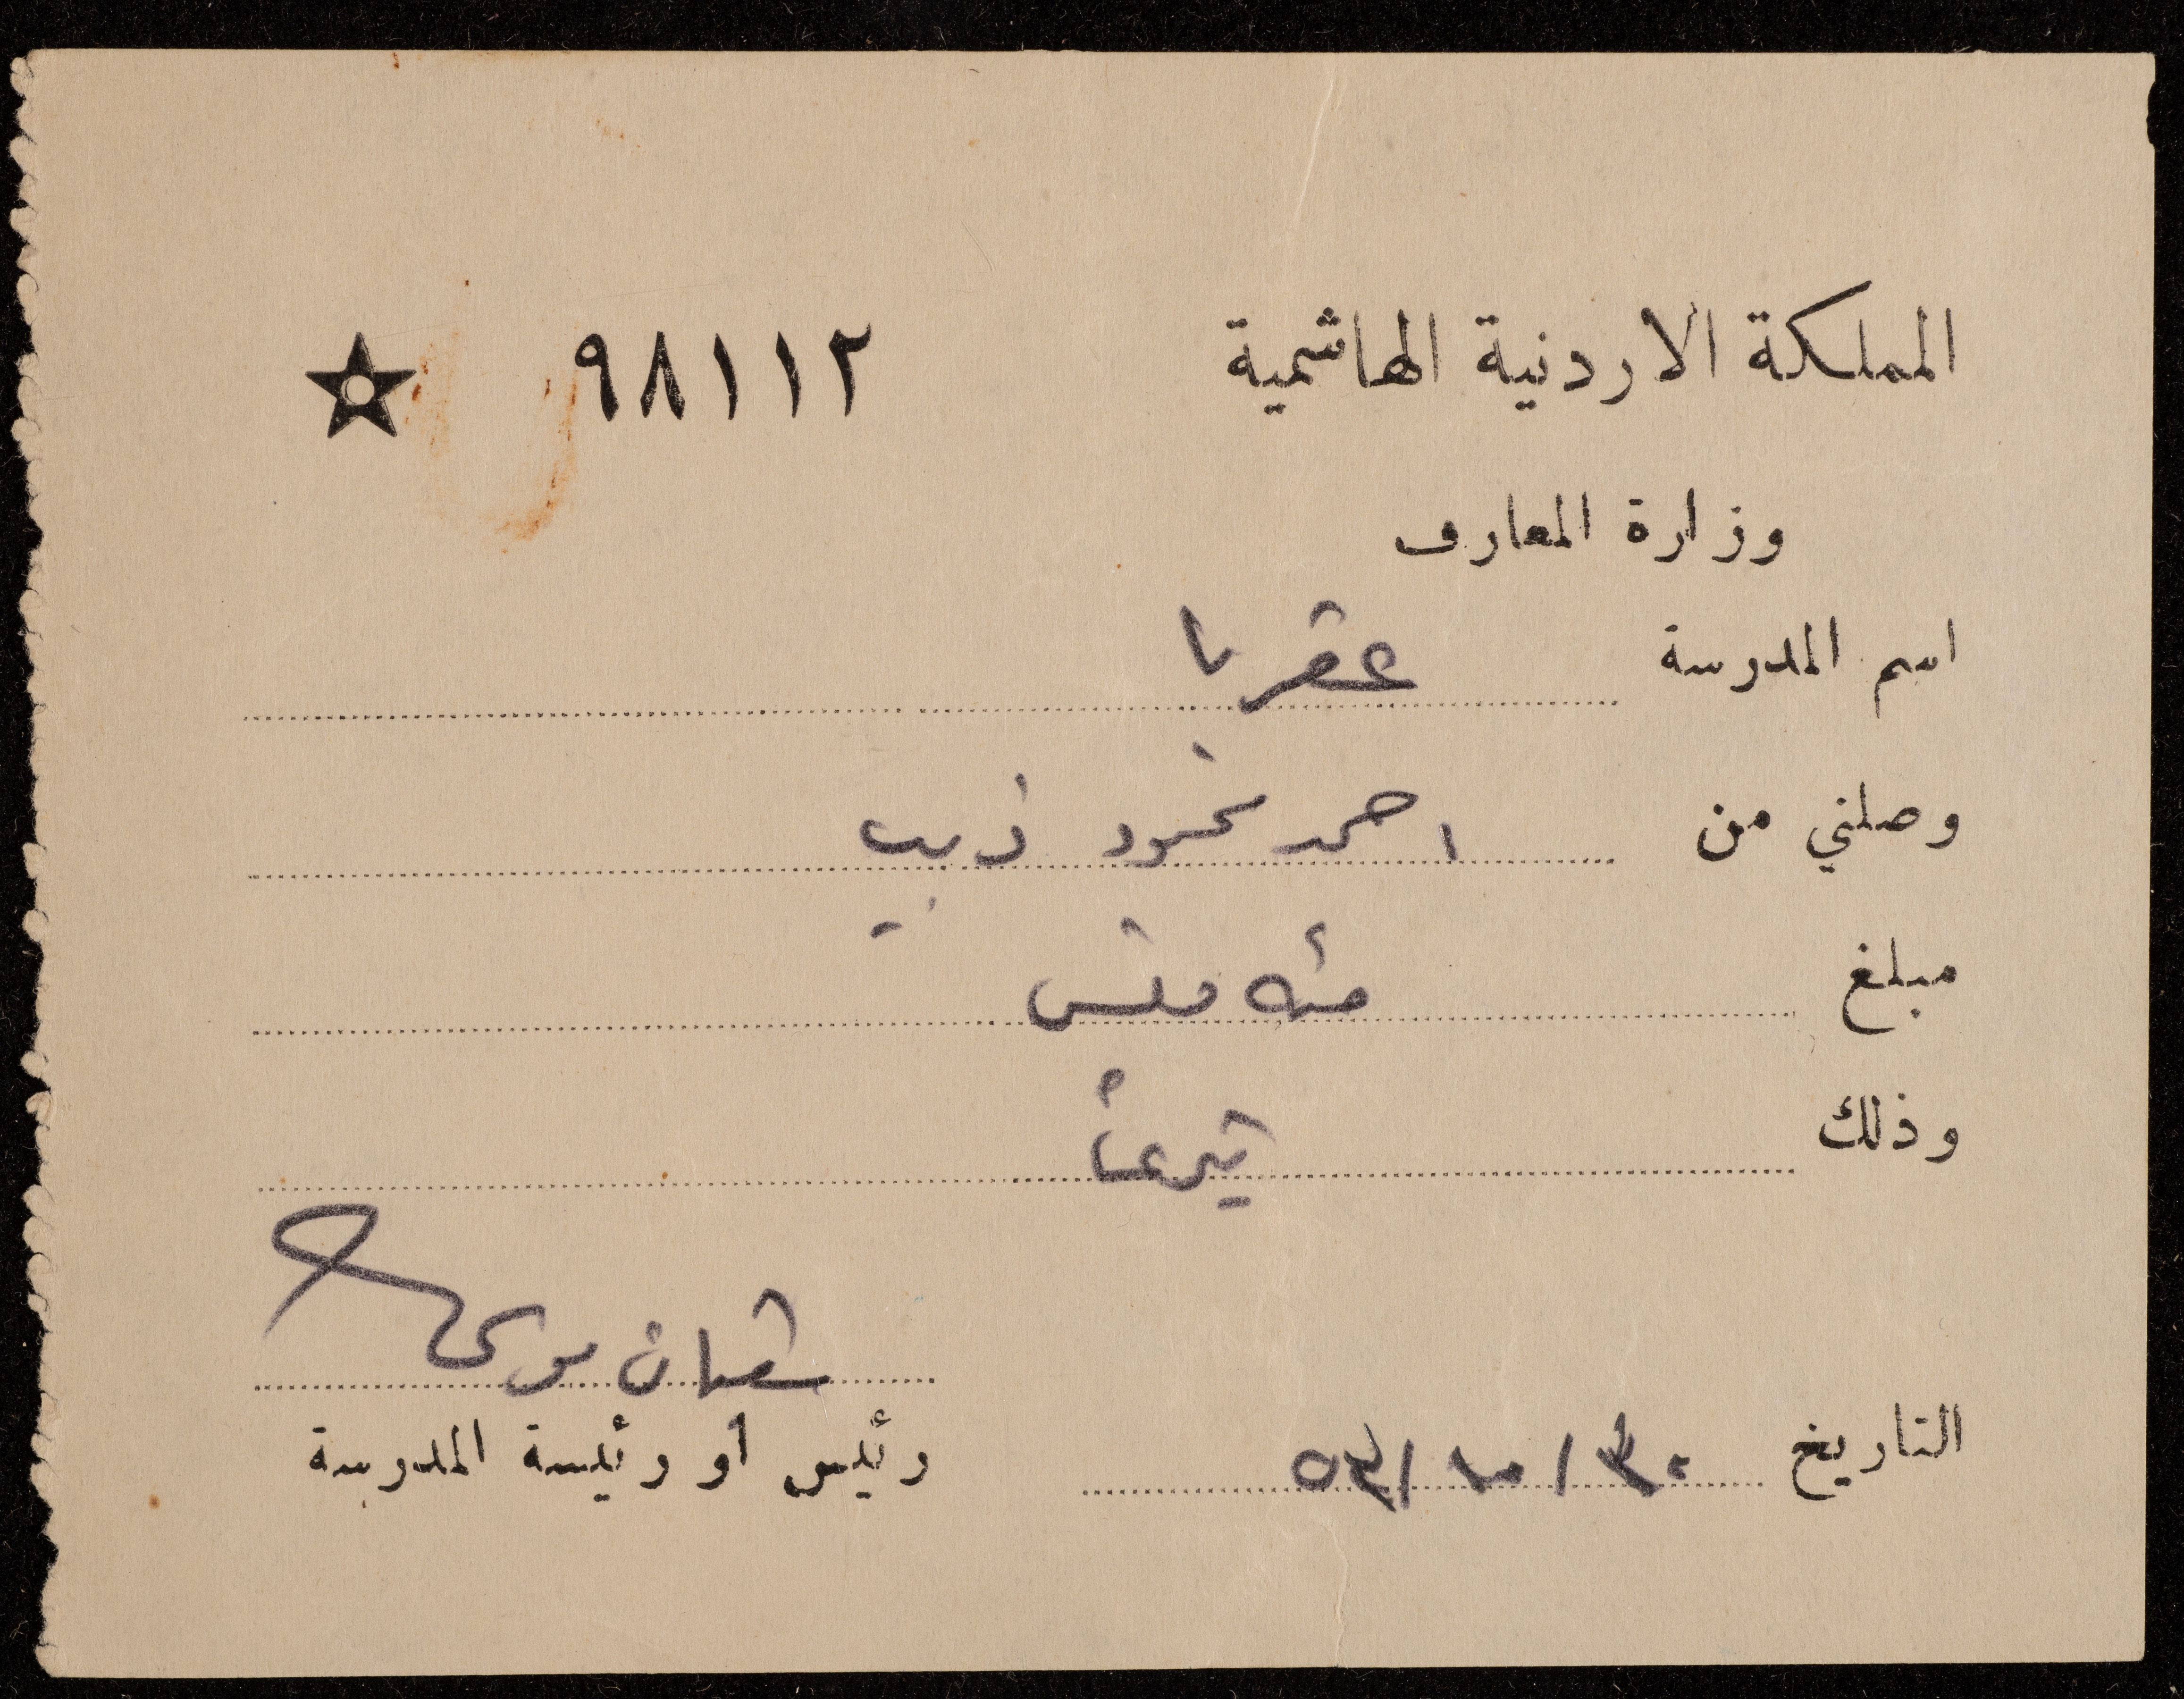 المملكة الاردنية الهاشمية ٩٨١١٢
وزارة المعارف
اسم المدرسة عقربا
وصلني من احمد محمود ذيب
مبلغ مئة فلس
وذلك تبرعاً
شعبان موسى
التاريخ ٣٠/١٠/٥٣ رئيس او رئيسة المدرسة